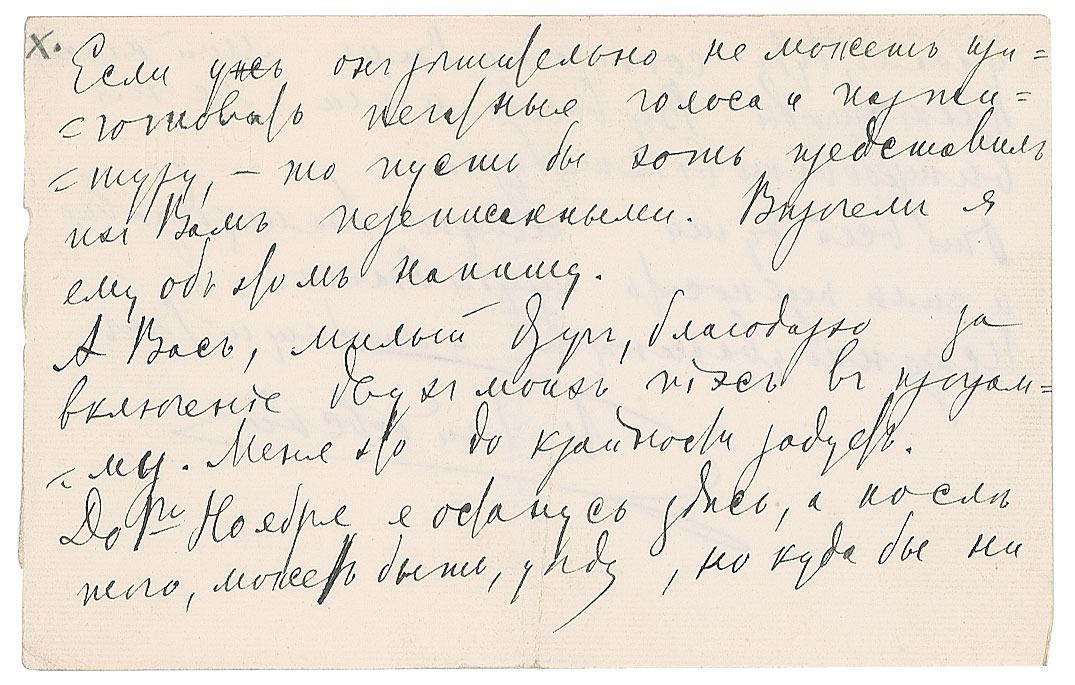 х. Если ужъ онъ рѣшительно не можетъ при=
=готовить печатные голоса и парти=
=туру, – то пусть бы хоть представилъ
ихъ Вамъ переписанными. Впрочемъ я
ему объ этомъ напишу.
А Васъ, милый другъ, благодарю за
включеніе двухъ моихъ пьэсъ въ програм=
=му. Меня это до крайности радуетъ.
До 1го Ноября я останусь здѣсь, а послѣ
того, можетъ быть, уѣду, но куда бы ни